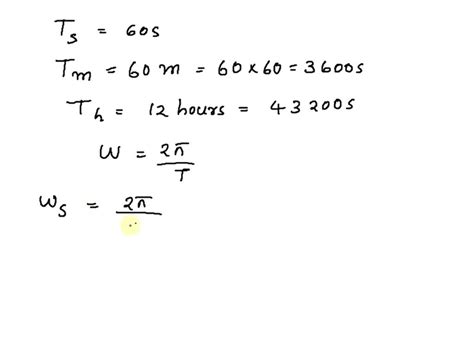 T_s = 60s
T_m = 60 m = 60 × 60 = 3600s
T_h = 12 hours = 43200s
W = 2π/T
W_s = 2π/